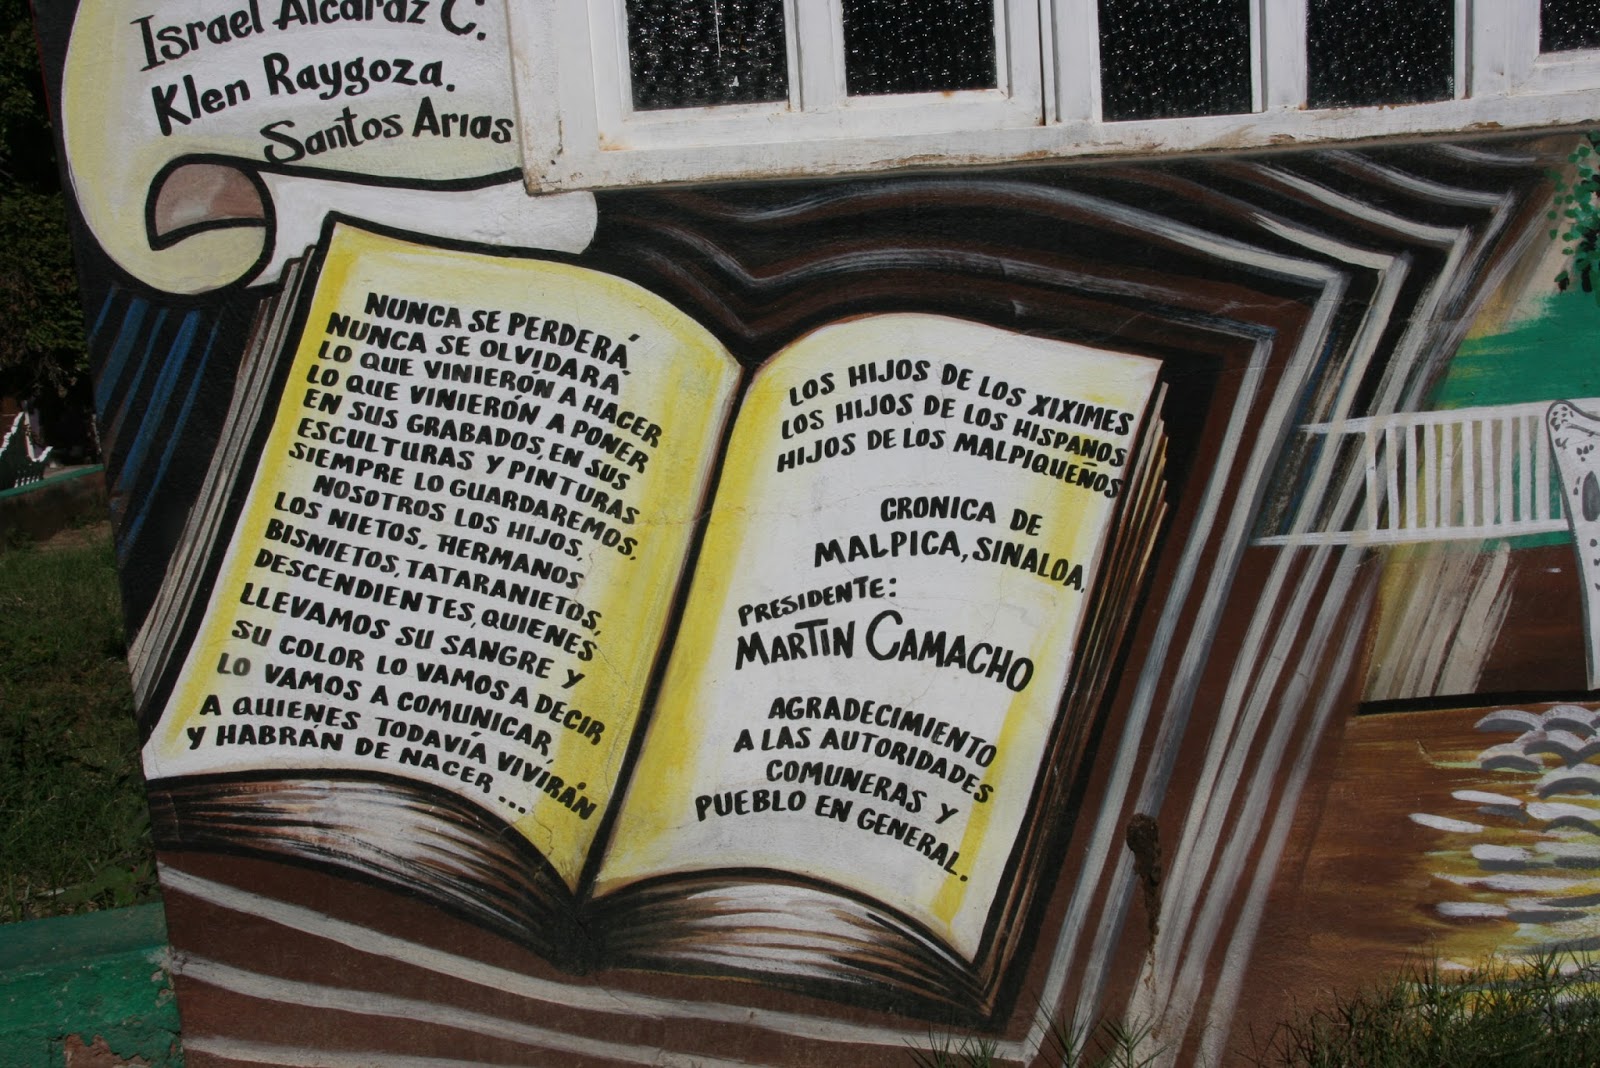 Israel Alcaraz C.
Klen Raygoza.
Santos Arias
NUNCA SE PERDERÁ
NUNCA SE OLVIDARÁ
LO QUE VINIERÓN A HACER
LO QUE VINIERÓN A PONER
EN SUS GRABADOS, EN SUS
ESCULTURAS Y PINTURAS
SIEMPRE LO GUARDAREMOS,
NOSOTROS LOS HIJOS,
LOS NIETOS, HERMANOS
BISNIETOS, TATARANIETOS,
DESCENDIENTES, QUIENES
LLEVAMOS SU SANGRE Y
SU COLOR LO VAMOS A DECIR
LO VAMOS A COMUNICAR,
A QUIENES TODAVÍA VIVIRÁN
Y HABRÁN DE NACER...
LOS HIJOS DE LOS XIXIMES
LOS HIJOS DE LOS HISPANOS
HIJOS DE LOS MALPIQUEÑOS
CRONICA DE
MALPICA, SINALOA,
PRESIDENTE:
MARTIN CAMACHO
AGRADECIMIENTO
A LAS AUTORIDADES
COMUNERAS Y
PUEBLO EN GENERAL.